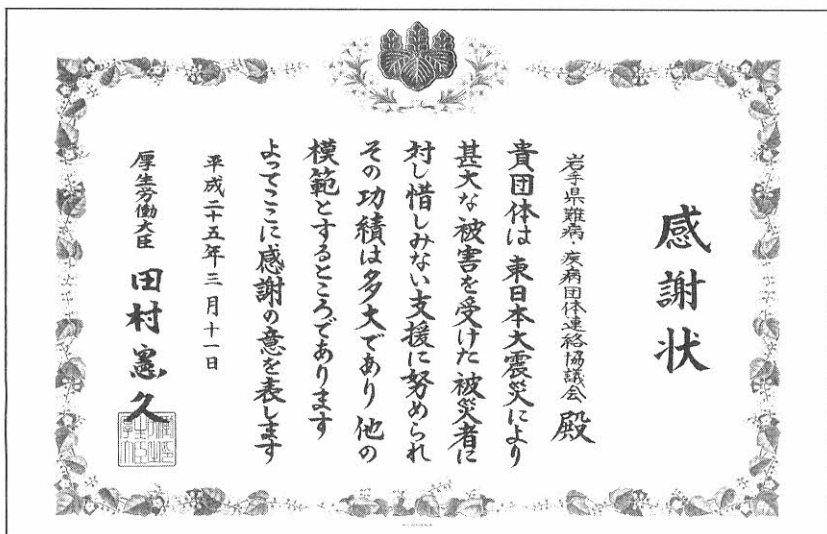 感謝状
岩手県難病・疾病団体連絡協議会 殿
貴団体は東日本大震災により
甚大な被害を受けた被災者に
対し惜しみない支援に努められ
その功績は多大であり他の
模範とするところであります
よってここに感謝の意を表します
平成二十五年三月十一日
厚生労働大臣 田村憲久